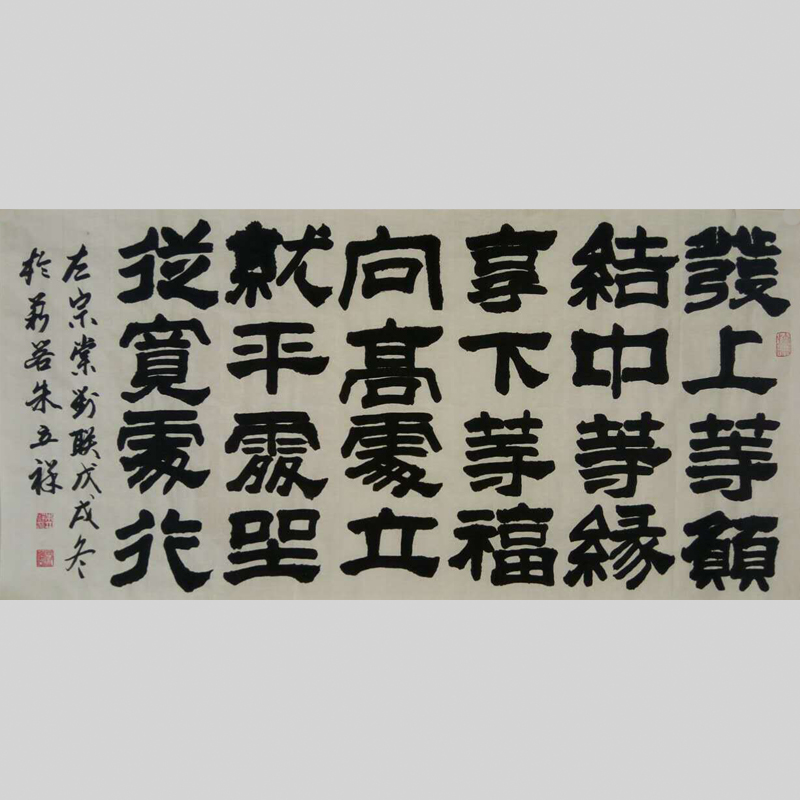 發上等願
結中等緣
享下等福
向高處立
就平處坐
從寬處行
左宗棠對聯戊戌冬
於朱立祥